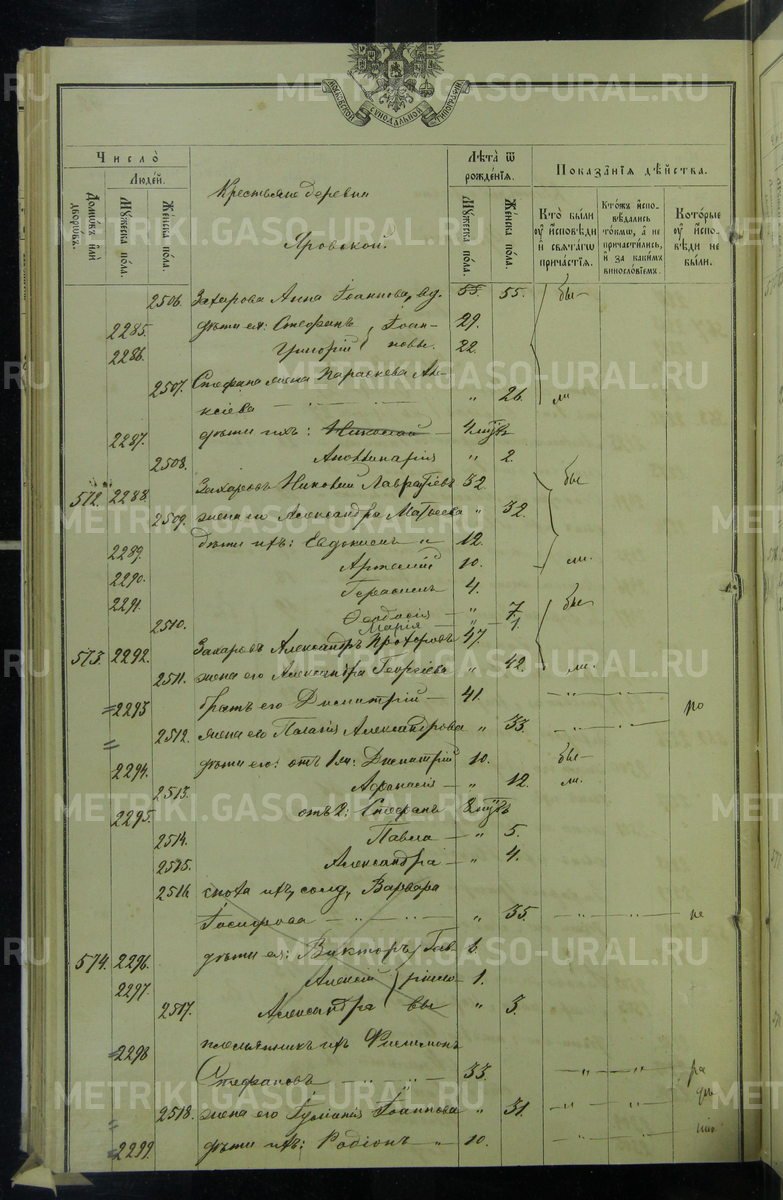 METRIKI.GASO-URAL.RU
МОСКОВСКОЙ СУНОДАЛЬНОЙ ТИПОГРАФІИ
Число̀
Людей.
Домѡвъ или дворѡвъ.
Мужеска пола.
Женска пола.
Крестьяне деревни
Яровской.
Лѣта ѿ рожденїѧ.
Мужеска пола.
Женска пола.
Показанїѧ дѣйства.
Кто были оу исповѣди и свѧтагѡ причастїѧ.
Ктожъ исповѣдались токмѡ, а не причастились, и за какимъ винословїемъ.
Которые оу исповѣди не были.
2506. Захарова Анна Іоаннова, вд. 55. 55. бы
2285. дѣти ея: Стефанъ Іоан- 29.
2286. Григорій новы. 22.
2507. Стефана жена Параскева Але-
ксіева — " 26. ли
2287. дѣти ихъ: Николай — 4
2508. Аполлинарія " 2.
572. 2288. Захаровъ Николай 32. бы
2509. жена его Александра Матѳеева " 32.
2289. дѣти ихъ: Евдокимъ " 12.
2290. Артемій 10. ли.
2291. Герасимъ 4.
2510. Ѳеодосія — " 7 бы
Марія — " 1.
573. 2292. Захаровъ Александръ Прохоровъ 47.
2511. жена его Александра Георгіева " 42. ли.
=2293 братъ его Димитрій — 41. — " — " —
2512. жена его Пелагія Александрова " 33. — " — " —
2294. дѣти его: отъ 1 ж: Димитрій 10. бы—
2513. Афанасія — " 12. ли.
2295. отъ 2: Стефанъ 2
2514. Павла — " 5.
2515. Александра — " 4.
2516 сноха ихъ, солд, Варвара
Іосифова — " — " — " 35 — " — " — не
574. 2296. дѣти ея: Викторъ Гав- 6.
2297. Алексій ріило- 1.
2517. Александра вы " 3.
=2298 племянникъ ихъ Филимонъ
Стефановъ — " — " — 33. — " — " — ра
2518. жена его Іуліанія Іоаннова " 31. — " — " — дѣ
=2299. дѣти ихъ: Родіонъ " 10. — " — " —